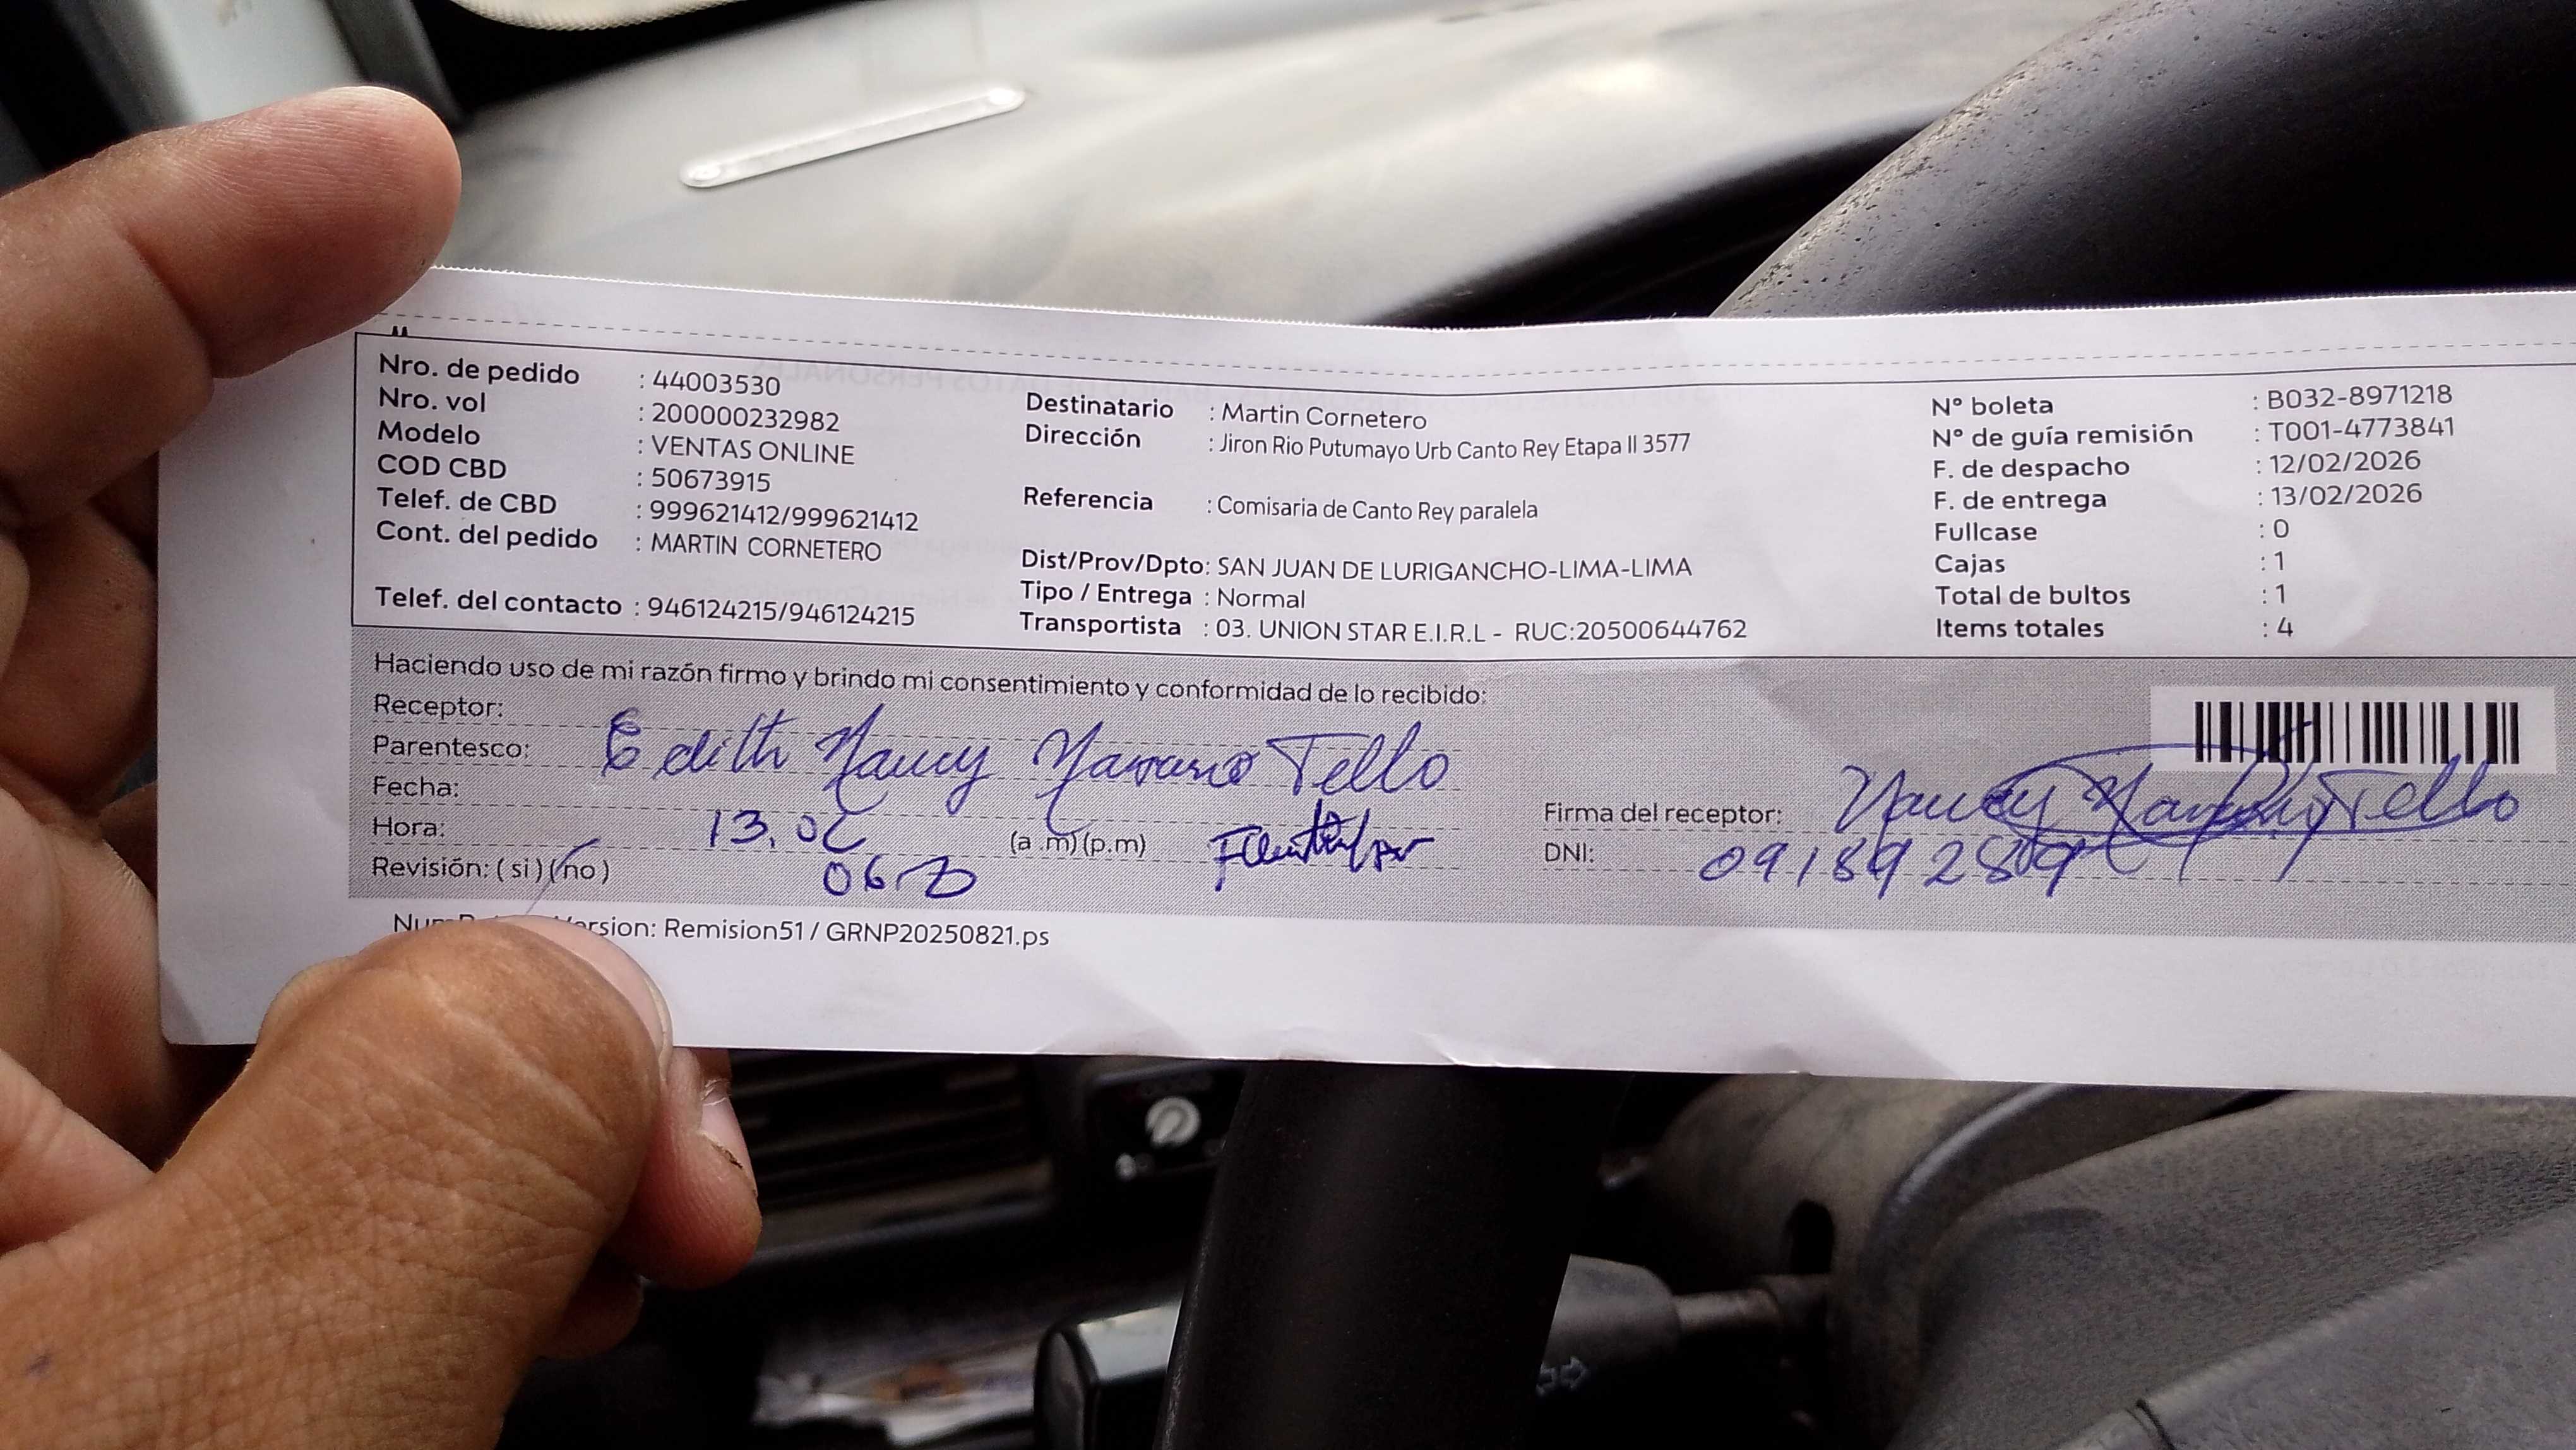 Nro. de pedido : 44003530
Nro. vol : 200000232982
Modelo : VENTAS ONLINE
COD CBD : 50673915
Telef. de CBD : 999621412/999621412
Cont. del pedido : MARTIN CORNETERO
Telef. del contacto : 946124215/946124215
Destinatario : Martin Cornetero
Dirección : Jiron Rio Putumayo Urb Canto Rey Etapa II 3577
Referencia : Comisaria de Canto Rey paralela
Dist/Prov/Dpto: SAN JUAN DE LURIGANCHO-LIMA-LIMA
Tipo / Entrega : Normal
Transportista : 03. UNION STAR E.I.R.L - RUC:20500644762
N° boleta : B032-8971218
N° de guía remisión : T001-4773841
F. de despacho : 12/02/2026
F. de entrega : 13/02/2026
Fullcase : 0
Cajas : 1
Total de bultos : 1
Items totales : 4
Haciendo uso de mi razón firmo y brindo mi consentimiento y conformidad de lo recibido:
Receptor:
Parentesco: Edith Nancy Navarro Tello
Fecha:
Hora: 13. (a .m) (p.m)
Revisión: ( si ) ( no )
Firma del receptor: Nancy Tello
DNI:
ersion: Remision51 / GRNP20250821.ps